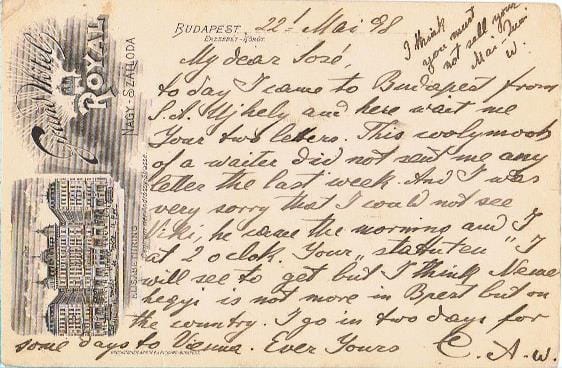 Grand Hôtel
ROYAL
NAGY-SZÁLLODA
ELISABETHRING
BUDAPEST, 22! Mai 98
ERZSÉBET-KÖRÚT.
I think
you must
not sell your
Mai.
W.
My dear
to day I came to Budapest from
S. A. Ujhely and here wait me
Your two letters. This woolymooh
of a waiter did not sent me any
letter the last week. And I was
very sorry that I could not see
Vikki, he came the morning and I
at 2 o clok. Your "statuten" I
will see to get but I think Neme
hegyi is not more in Bpest but on
the country. I go in two days for
some days to Vienna. Ever Yours C. A. W.